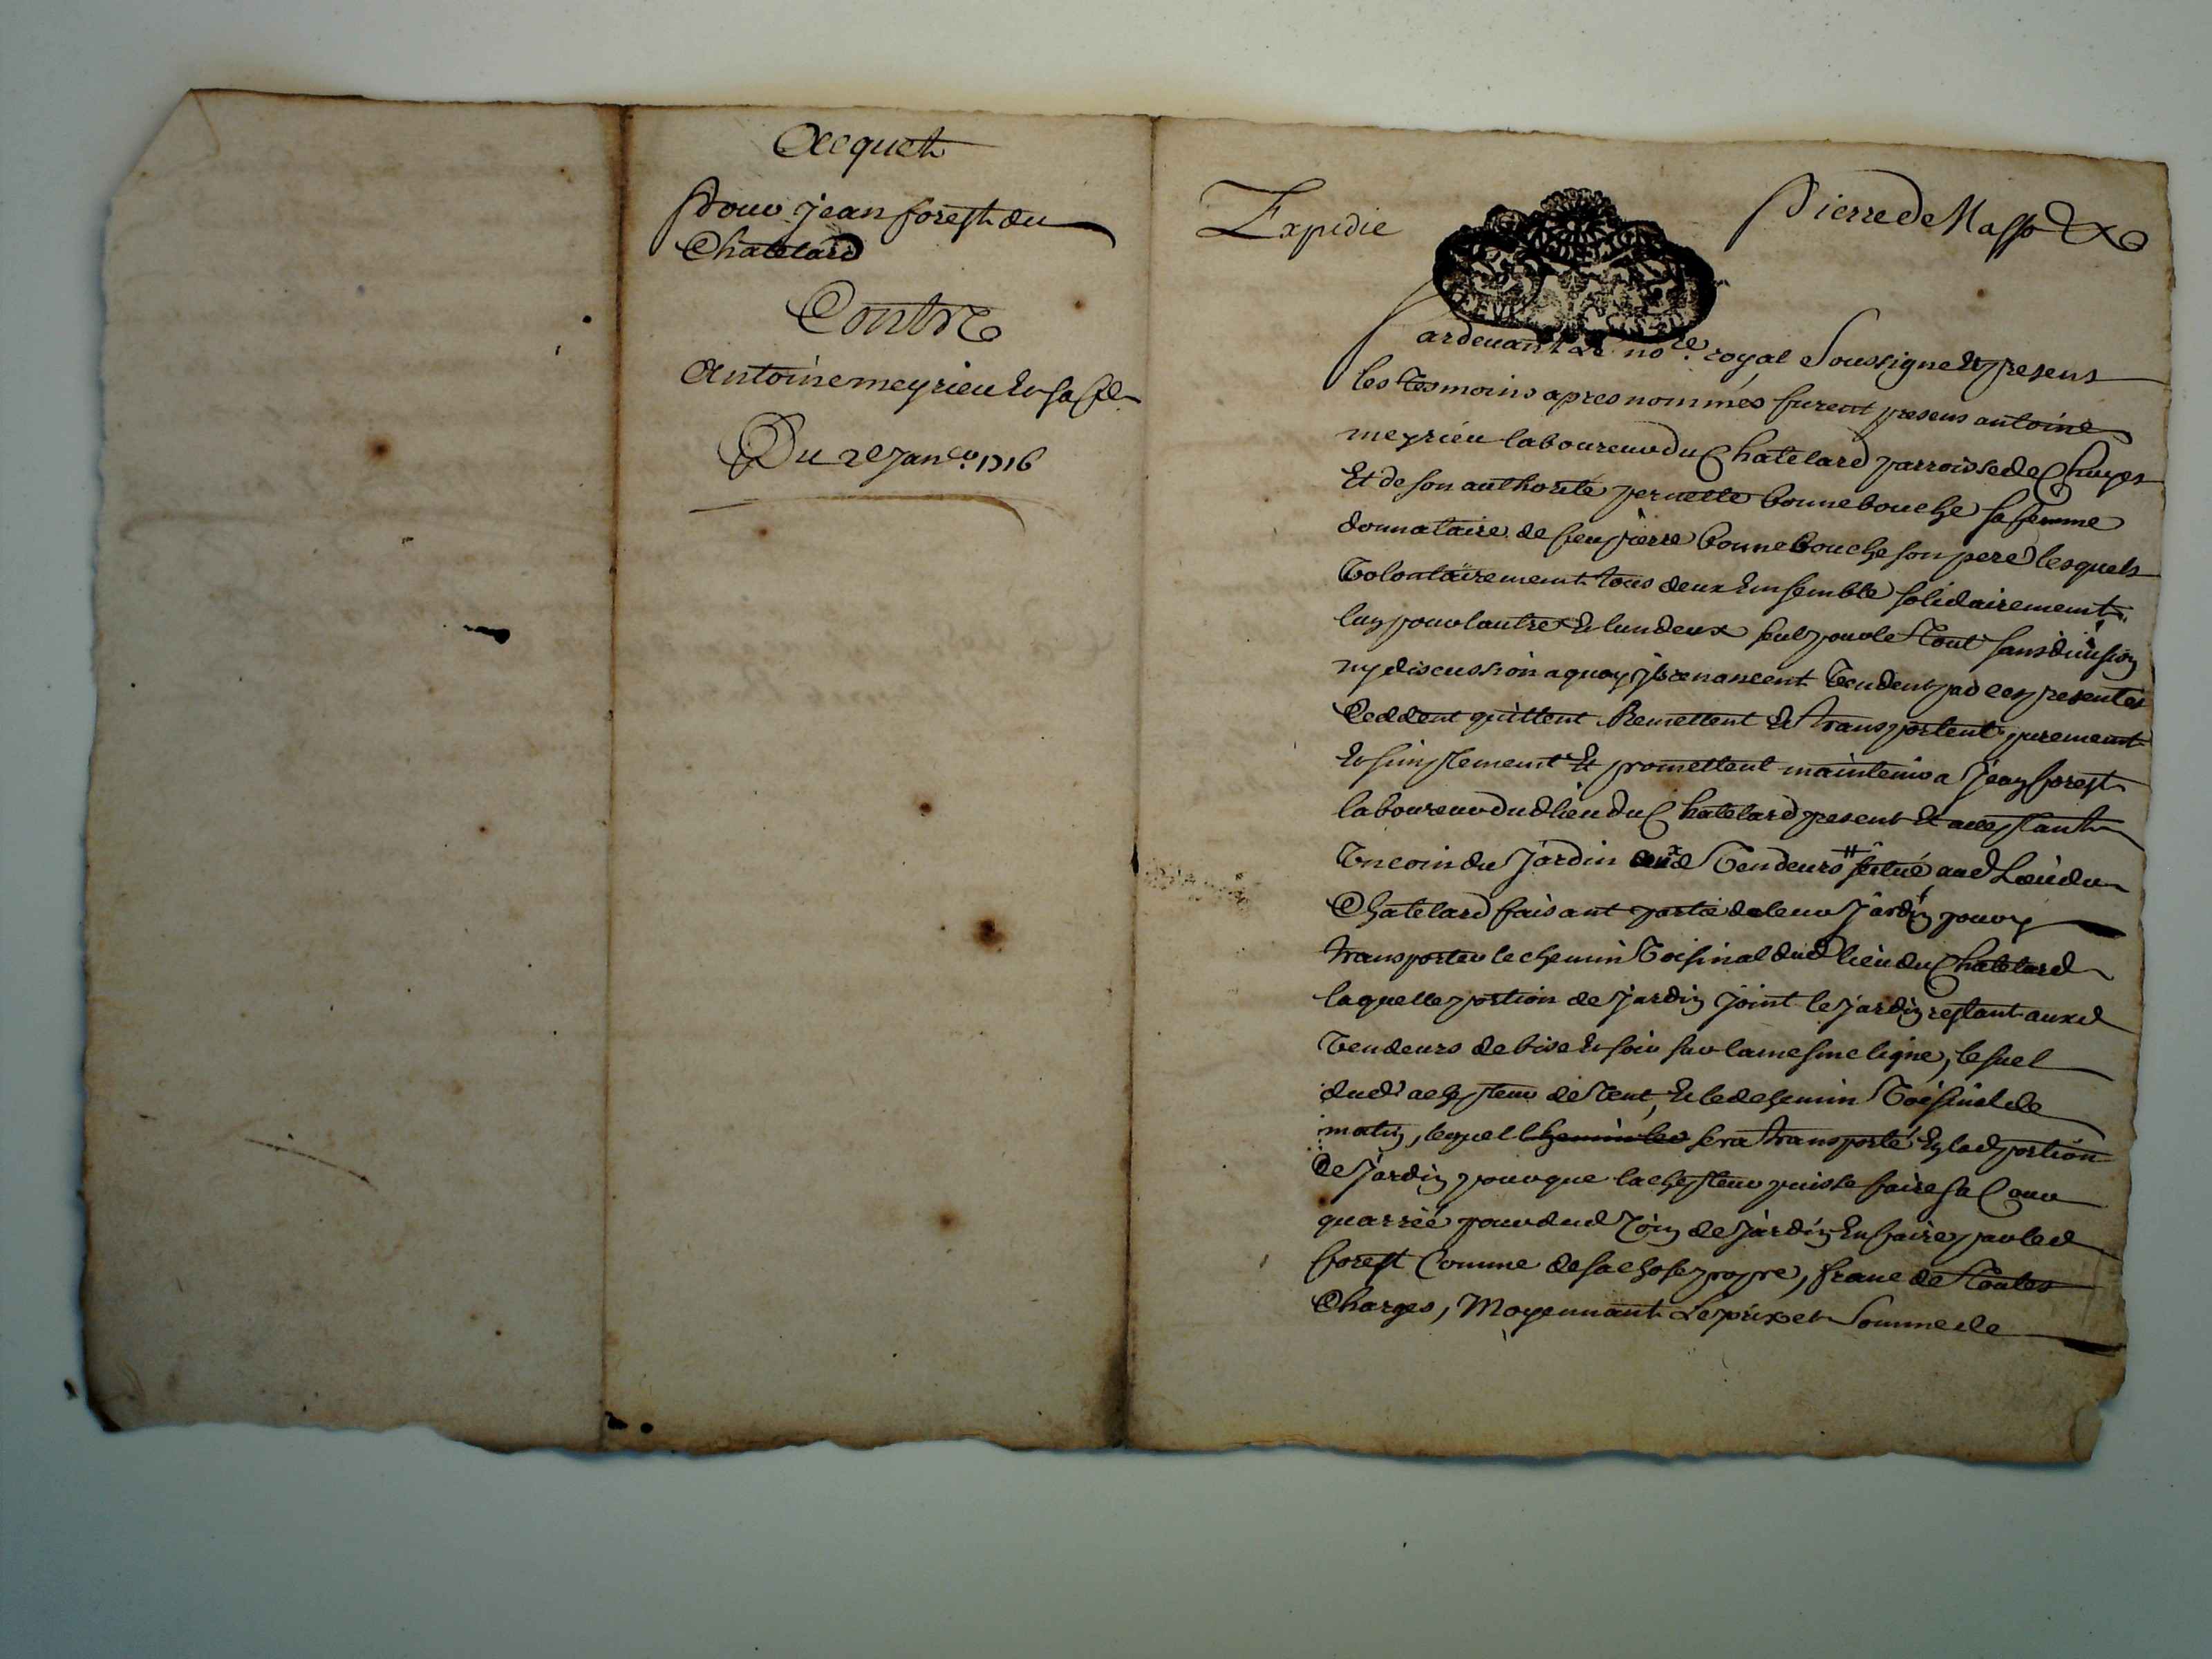 Acquet
pour jean forest du
Chatelard
Contre
Antoine meyrieu et sa fe
Du 2e Janer. 1716
Expedie
Pierre de Masso
Pardevant Le nore. royal Soussigne et presens
les tesmoins apres nommés furent presens antoine
meyrieu laboureur du Chatelard parroisse de Chuyes
Et de son authorité pernette bonnebouche sa femme
donnataire de feu pierre bonnebouche son pere lesquels
Volontairement tous deux Ensemble solidairement
lun pour lautre et lun deux seul pour le tout sans division
ny discussion a quoy ils renoncent Vendent par ces presentes
Ceddent quittent Remettent et transportent purement
et simplement Et promettent maintenir a jean forest
laboureur dud lieu du Chatelard present Et acceptant
Un coin du Jardin Vendeurs situé aud Lieu du
Chatelard faisant partie de leur jardin pour y
transporter le chemin Voisinal dud lieu du Chatelard
laquelle portion de jardin joint le jardin restant auxd
Vendeurs de bise et soir sur la mesme ligne, le suel
dud achepteur de vent, et led chemin Voisinal de
matin, lequel chemin sera transporté en lad portion
de jardin pour que lachepteur puisse faire sa Cour
quarrée pour dud Coin de jardin En faire par led
forest Comme de sa chose propre, franc de toutes
Charges, Moyennant Le prix et Somme de